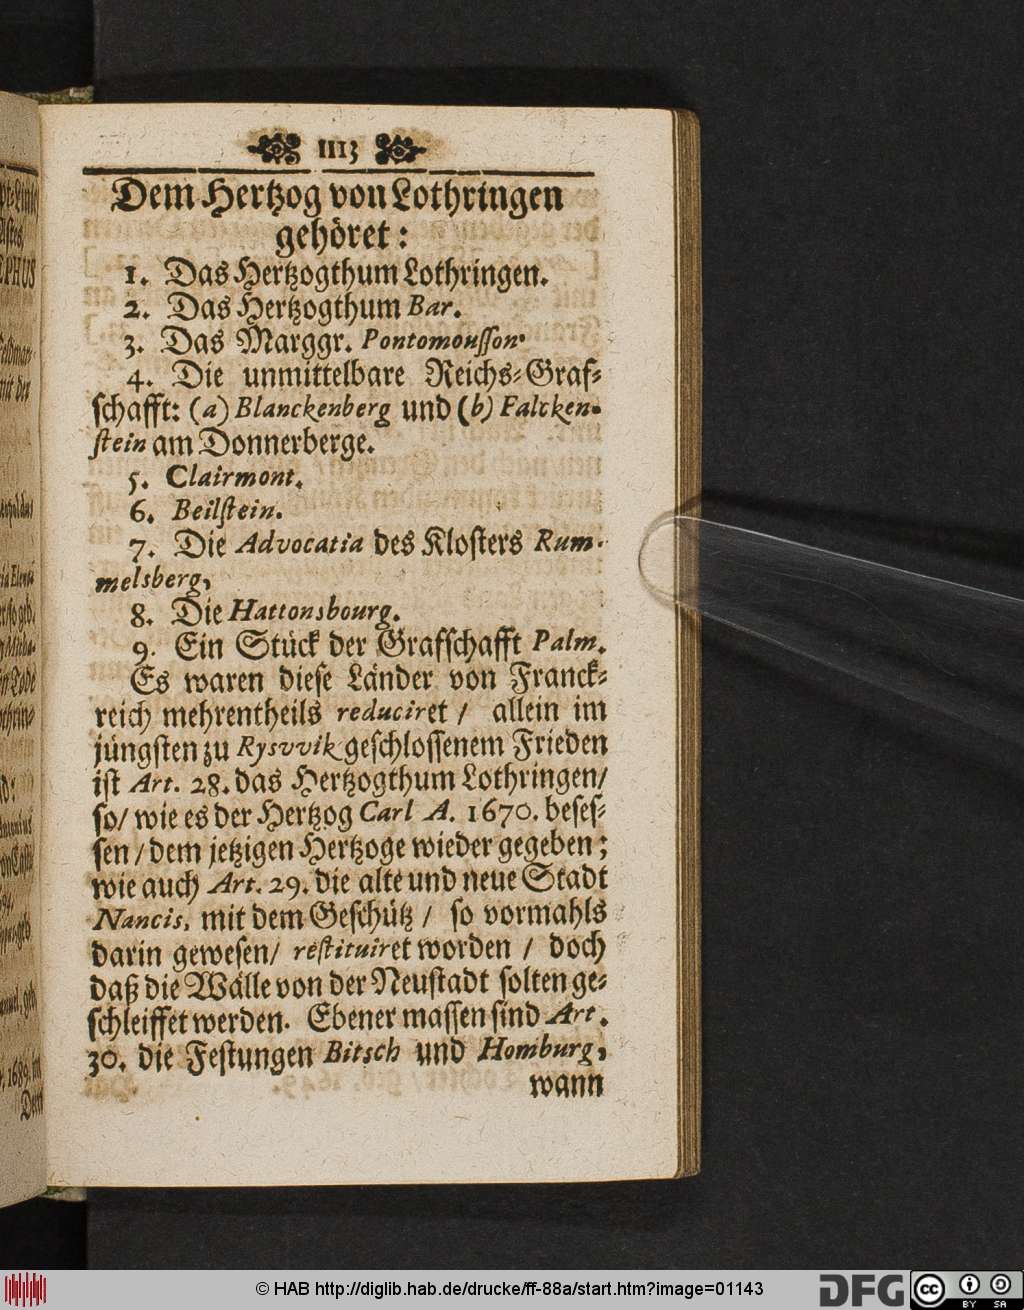 1113
Dem Hertzog von Lothringen
gehöret:
1. Das Hertzogthum Lothringen.
2. Das Hertzogthum Bar.
3. Das Marggr. Pontomousson.
4. Die unmittelbare Reichs-Graf-
schafft: (a) Blanckenberg und (b) Falcken-
stein am Donnerberge.
5. Clairmont.
6. Beilstein.
7. Die Advocatia des Klosters Rum-
melsberg,
8. Die Hattonsbourg.
9. Ein Stück der Grafschafft Palm.
Es waren diese Länder von Franck-
reich mehrentheils reduciret / allein im
jüngsten zu Rysvvik geschlossenem Frieden
ist Art. 28. das Hertzogthum Lothringen/
so/ wie es der Hertzog Carl A. 1670. beses-
sen / dem jetzigen Hertzoge wieder gegeben;
wie auch Art. 29. die alte und neue Stadt
Nancis, mit dem Geschütz / so vormahls
darin gewesen/ restituiret worden / doch
daß die Wälle von der Neustadt solten ge-
schleiffet werden. Ebener massen sind Art.
30. die Festungen Bitsch und Homburg,
wann
© HAB http://diglib.hab.de/drucke/ff-88a/start.htm?image=01143
DFG
cc
BY SA